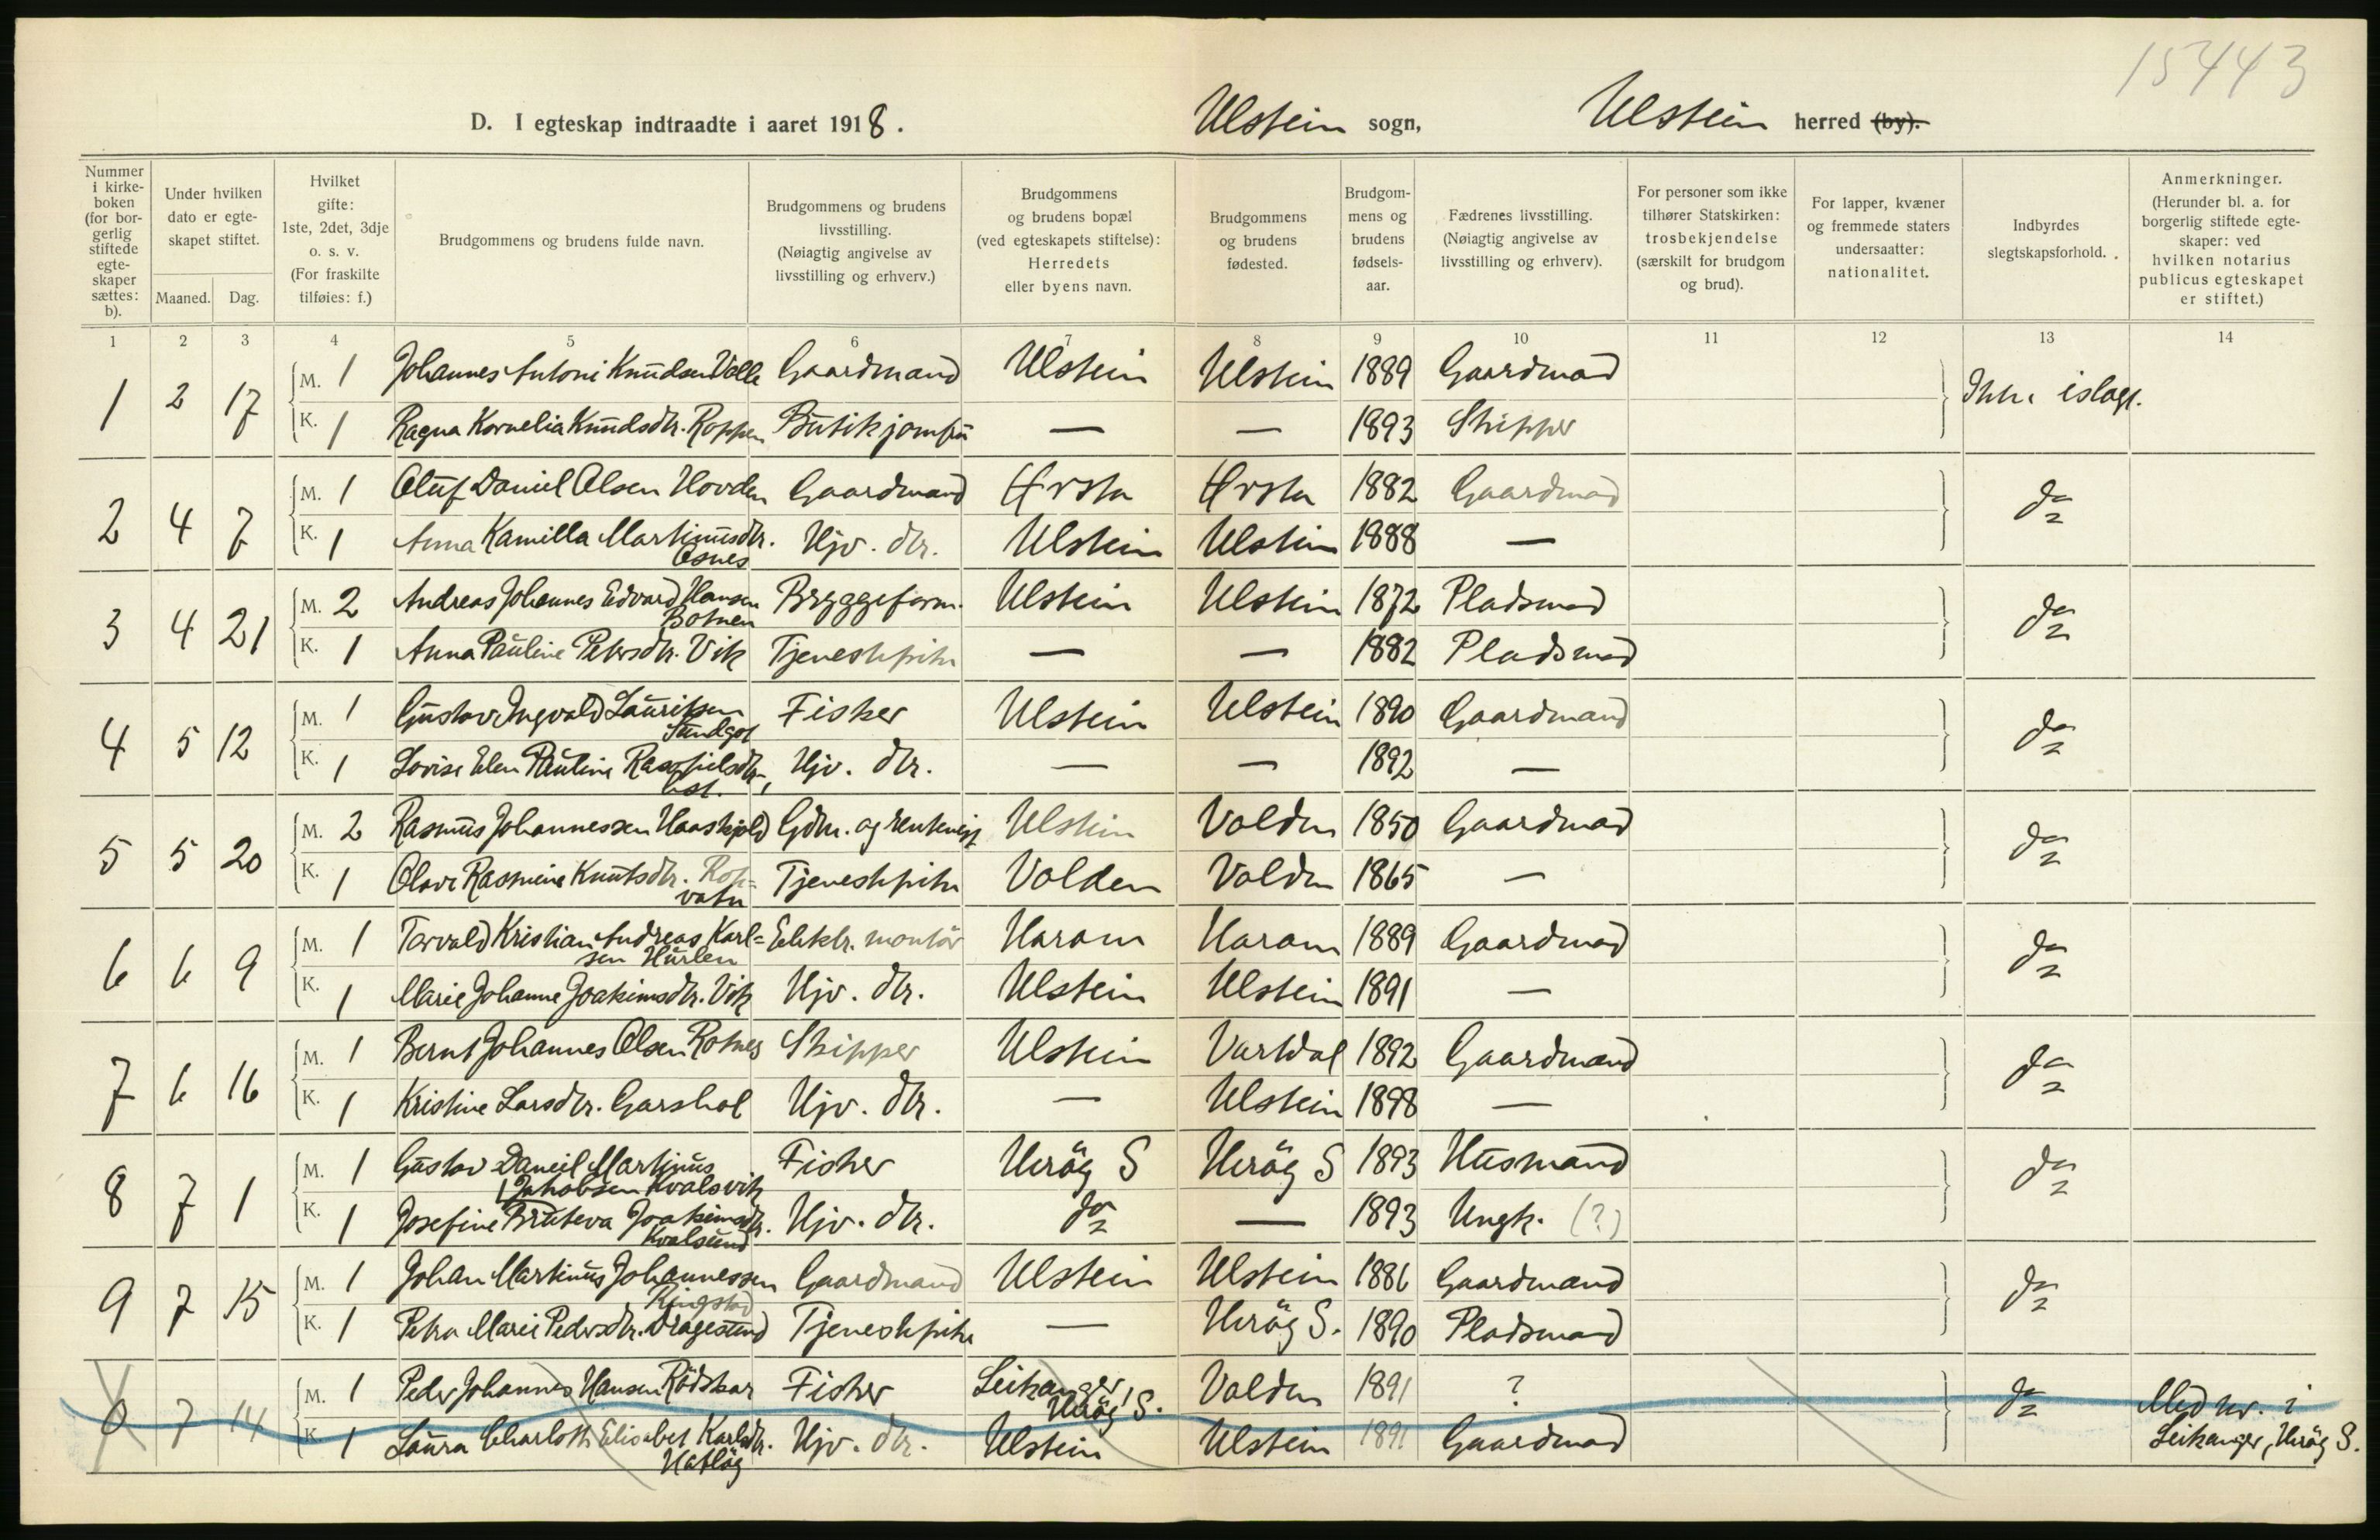 15443
D. I egteskap indtraadte i aaret 1918. Ulstein sogn, Ulstein herred (by).
Nummer i kirkeboken (for borgerlig stiftede egteskaper sættes: b).
Under hvilken dato er egteskapet stiftet.
Maaned. Dag.
Hvilket gifte: 1ste, 2det, 3dje o. s. v. (For fraskilte tilføies: f.)
Brudgommens og brudens fulde navn.
Brudgommens og brudens livsstilling. (Nøiagtig angivelse av livsstilling og erhverv.)
Brudgommens og brudens bopæl (ved egteskapets stiftelse): Herredets eller byens navn.
Brudgommens og brudens fødested.
Brudgommens og brudens fødselsaar.
Fædrenes livsstilling. (Nøiagtig angivelse av livsstilling og erhverv).
For personer som ikke tilhører Statskirken: trosbekjendelse (særskilt for brudgom og brud).
For lapper, kvæner og fremmede staters undersaatter: nationalitet.
Indbyrdes slegtskapsforhold.
Anmerkninger. (Herunder bl. a. for borgerlig stiftede egteskaper: ved hvilken notarius publicus egteskapet er stiftet.)
1 2 3 4 5 6 7 8 9 10 11 12 13 14
1 2 17 M. 1 Johannes Antoni Knudsen Valle Gaardmand Ulstein Ulstein 1889 Gaardmand Ikke islagt.
K. 1 Ragna Kornelia Knudsdtr. Roppen Butikjomfru — — 1893 Skipper
2 4 7 M. 1 Oluf Daniel Olsen Hovden Gaardmand Ørsta Ørsta 1882 Gaardmand do
K. 1 Anna Kamilla Martinusdtr. Osnes Hjv. dtr. Ulstein Ulstein 1888 —
3 4 21 M. 2 Andreas Johannes Edvard Hansen Botnen Bryggeform. Ulstein Ulstein 1872 Pladsmand do
K. 1 Anna Pauline Petersdtr. Vik Tjenestepike — — 1882 Pladsmand
4 5 12 M. 1 Gustav Ingvald Lauritsen Sundgot Fisker Ulstein Ulstein 1890 Gaardmand do
K. 1 Lovise Elen Pauline Hjv. dtr. — — 1892 —
5 5 20 M. 2 Rasmus Johannessen Haaskjold Gdm. og Ulstein Volden 1850 Gaardmand do
K. 1 Olave Rasmine Knutsdtr. Rotevatn Tjenestepike Volden Volden 1865 —
6 6 9 M. 1 Torvald Kristian Andreas Karl=sen Hurlen Elektr. montör Haram Haram 1889 Gaardmand do
K. 1 Marie Johanne Joakimsdtr. Vik Hjv. dtr. Ulstein Ulstein 1891 —
7 6 16 M. 1 Bernt Johannes Olsen Rotnes Skipper Ulstein Vartdal 1892 Gaardmand do
K. 1 Kristine Larsdtr. Garshol Hjv. dtr. — Ulstein 1898 —
8 7 1 M. 1 Gustav Daneil Martinus Jakobsen Kvalsvik Fisker Heröy S Heröy S 1893 Husmand do
K. 1 Josefine Joakimsdtr. Kvalsund Hjv. dtr. do — 1893 Ungk. (?)
9 7 15 M. 1 Johan Martinus Johannessen Ringstad Gaardmand Ulstein Ulstein 1886 Gaardmand do
K. 1 Petra Marie Pedersdtr. Dragesund Tjenestepike — Heröy S. 1890 Pladsmand
0 7 14 M. 1 Peder Johannes Hansen Rödskar Fisker Leikanger, Heröy S. Volden 1891 ? do Med nr. i
K. 1 Laura Charlotte Elisabet Karlsdtr. Hatløy Hjv. dtr. Ulstein Ulstein 1891 Gaardmand Leikanger, Heröy S.